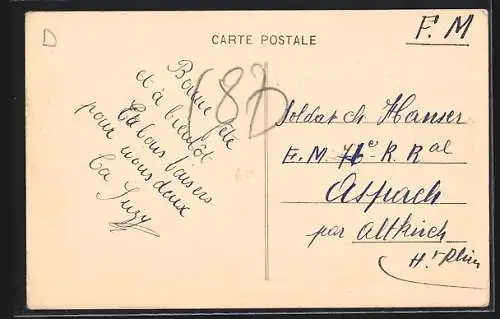 D
F. M
CARTE POSTALE
Bonne fête
et à bientôt
Et bons baisers
pour nous deux
Ta Suzy
(87)
Soldat ch Hanser
E. M. R. Ral
Aspach
par Altkirch
Ht Rhin